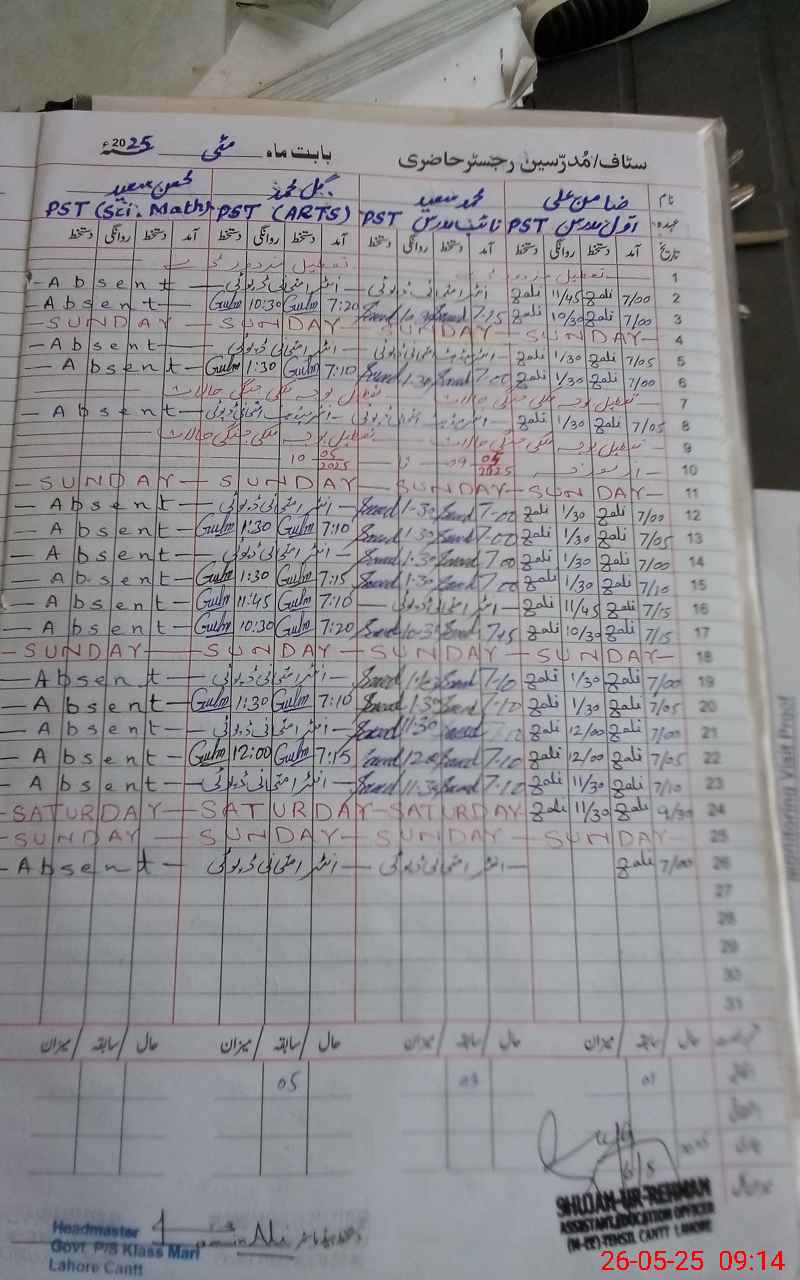 سٹاف/مُدرّسین رجسٹر حاضری بابت ماہ مئی 2025ء
نام ضامن علی محمد سعید گل محمد محسن سعید
عہدہ اوّل مدرس PST نائب مدرس PST PST (ARTS) PST (Sci. Math)
تاریخ آمد دستخط روانگی دستخط آمد دستخط روانگی دستخط آمد دستخط روانگی دستخط آمد دستخط روانگی دستخط
1
2 7/00 Zali 11/45 Zali Absent
3 7/00 Zali 10/30 Zali 7-15 Saeed Saeed 7:20 Gulm 10:30 Gulm Absent
4 SUNDAY SUNDAY SUNDAY SUNDAY
5 7/05 Zali 1/30 Zali Absent
6 7/00 Zali 1/30 Zali 7-00 Saeed 1:30 Saeed 7:10 Gulm 1:30 Gulm Absent
7 تعطیل بوجہ ملکی جنگی حالات تعطیل بوجہ ملکی جنگی حالات
8 7/05 Zali 1/30 Zali Absent
9 تعطیل بوجہ ملکی جنگی حالات تعطیل بوجہ ملکی جنگی حالات
10 09 05/2025 تا 10 05/2025
11 SUNDAY SUNDAY SUNDAY SUNDAY
12 7/00 Zali 1/30 Zali 7-00 Saeed 1-30 Saeed انٹر امتحانی ڈیوٹی Absent
13 7/05 Zali 1/30 Zali 7-00 Saeed 1:30 Saeed 7:10 Gulm 1:30 Gulm Absent
14 7/00 Zali 1/30 Zali 7-00 Saeed 1:30 Saeed انٹر امتحانی ڈیوٹی Absent
15 7/10 Zali 1/30 Zali 7-00 Saeed 1:30 Saeed 7:15 Gulm 1:30 Gulm Absent
16 7/15 Zali 11/45 Zali انٹر امتحانی ڈیوٹی 7:10 Gulm 11:45 Gulm Absent
17 7/15 Zali 10/30 Zali Saeed Saeed 7:20 Gulm 10:30 Gulm Absent
18 SUNDAY SUNDAY SUNDAY SUNDAY
19 7/00 Zali 1/30 Zali 7-10 Saeed Saeed انٹر امتحانی ڈیوٹی Absent
20 7/05 Zali 1/30 Zali Saeed 1:30 Saeed 7:10 Gulm 1:30 Gulm Absent
21 7/00 Zali 12/00 Zali Saeed 11:30 Saeed انٹر امتحانی ڈیوٹی Absent
22 7/05 Zali 12/00 Zali 7-10 Saeed Saeed 7:15 Gulm 12:00 Gulm Absent
23 7/10 Zali 11/30 Zali 7-10 Saeed 11:30 Saeed انٹر امتحانی ڈیوٹی Absent
24 9/30 Zali 11/30 Zali SATURDAY SATURDAY SATURDAY
25 SUNDAY SUNDAY SUNDAY SUNDAY
26 7/00 Zali انٹر امتحانی ڈیوٹی انٹر امتحانی ڈیوٹی Absent
27
28
29
30
31
حال سابقہ میزان حال سابقہ میزان حال سابقہ میزان حال سابقہ میزان
01 03 05
SHUJAH-UR-REHMAN
ASSISTANT EDUCATION OFFICER
(M-EE) TEHSIL CANTT LAHORE
Headmaster
Govt. P/S Klass Mari
Lahore Cantt
Monitoring Visit Prof
26-05-25 09:14